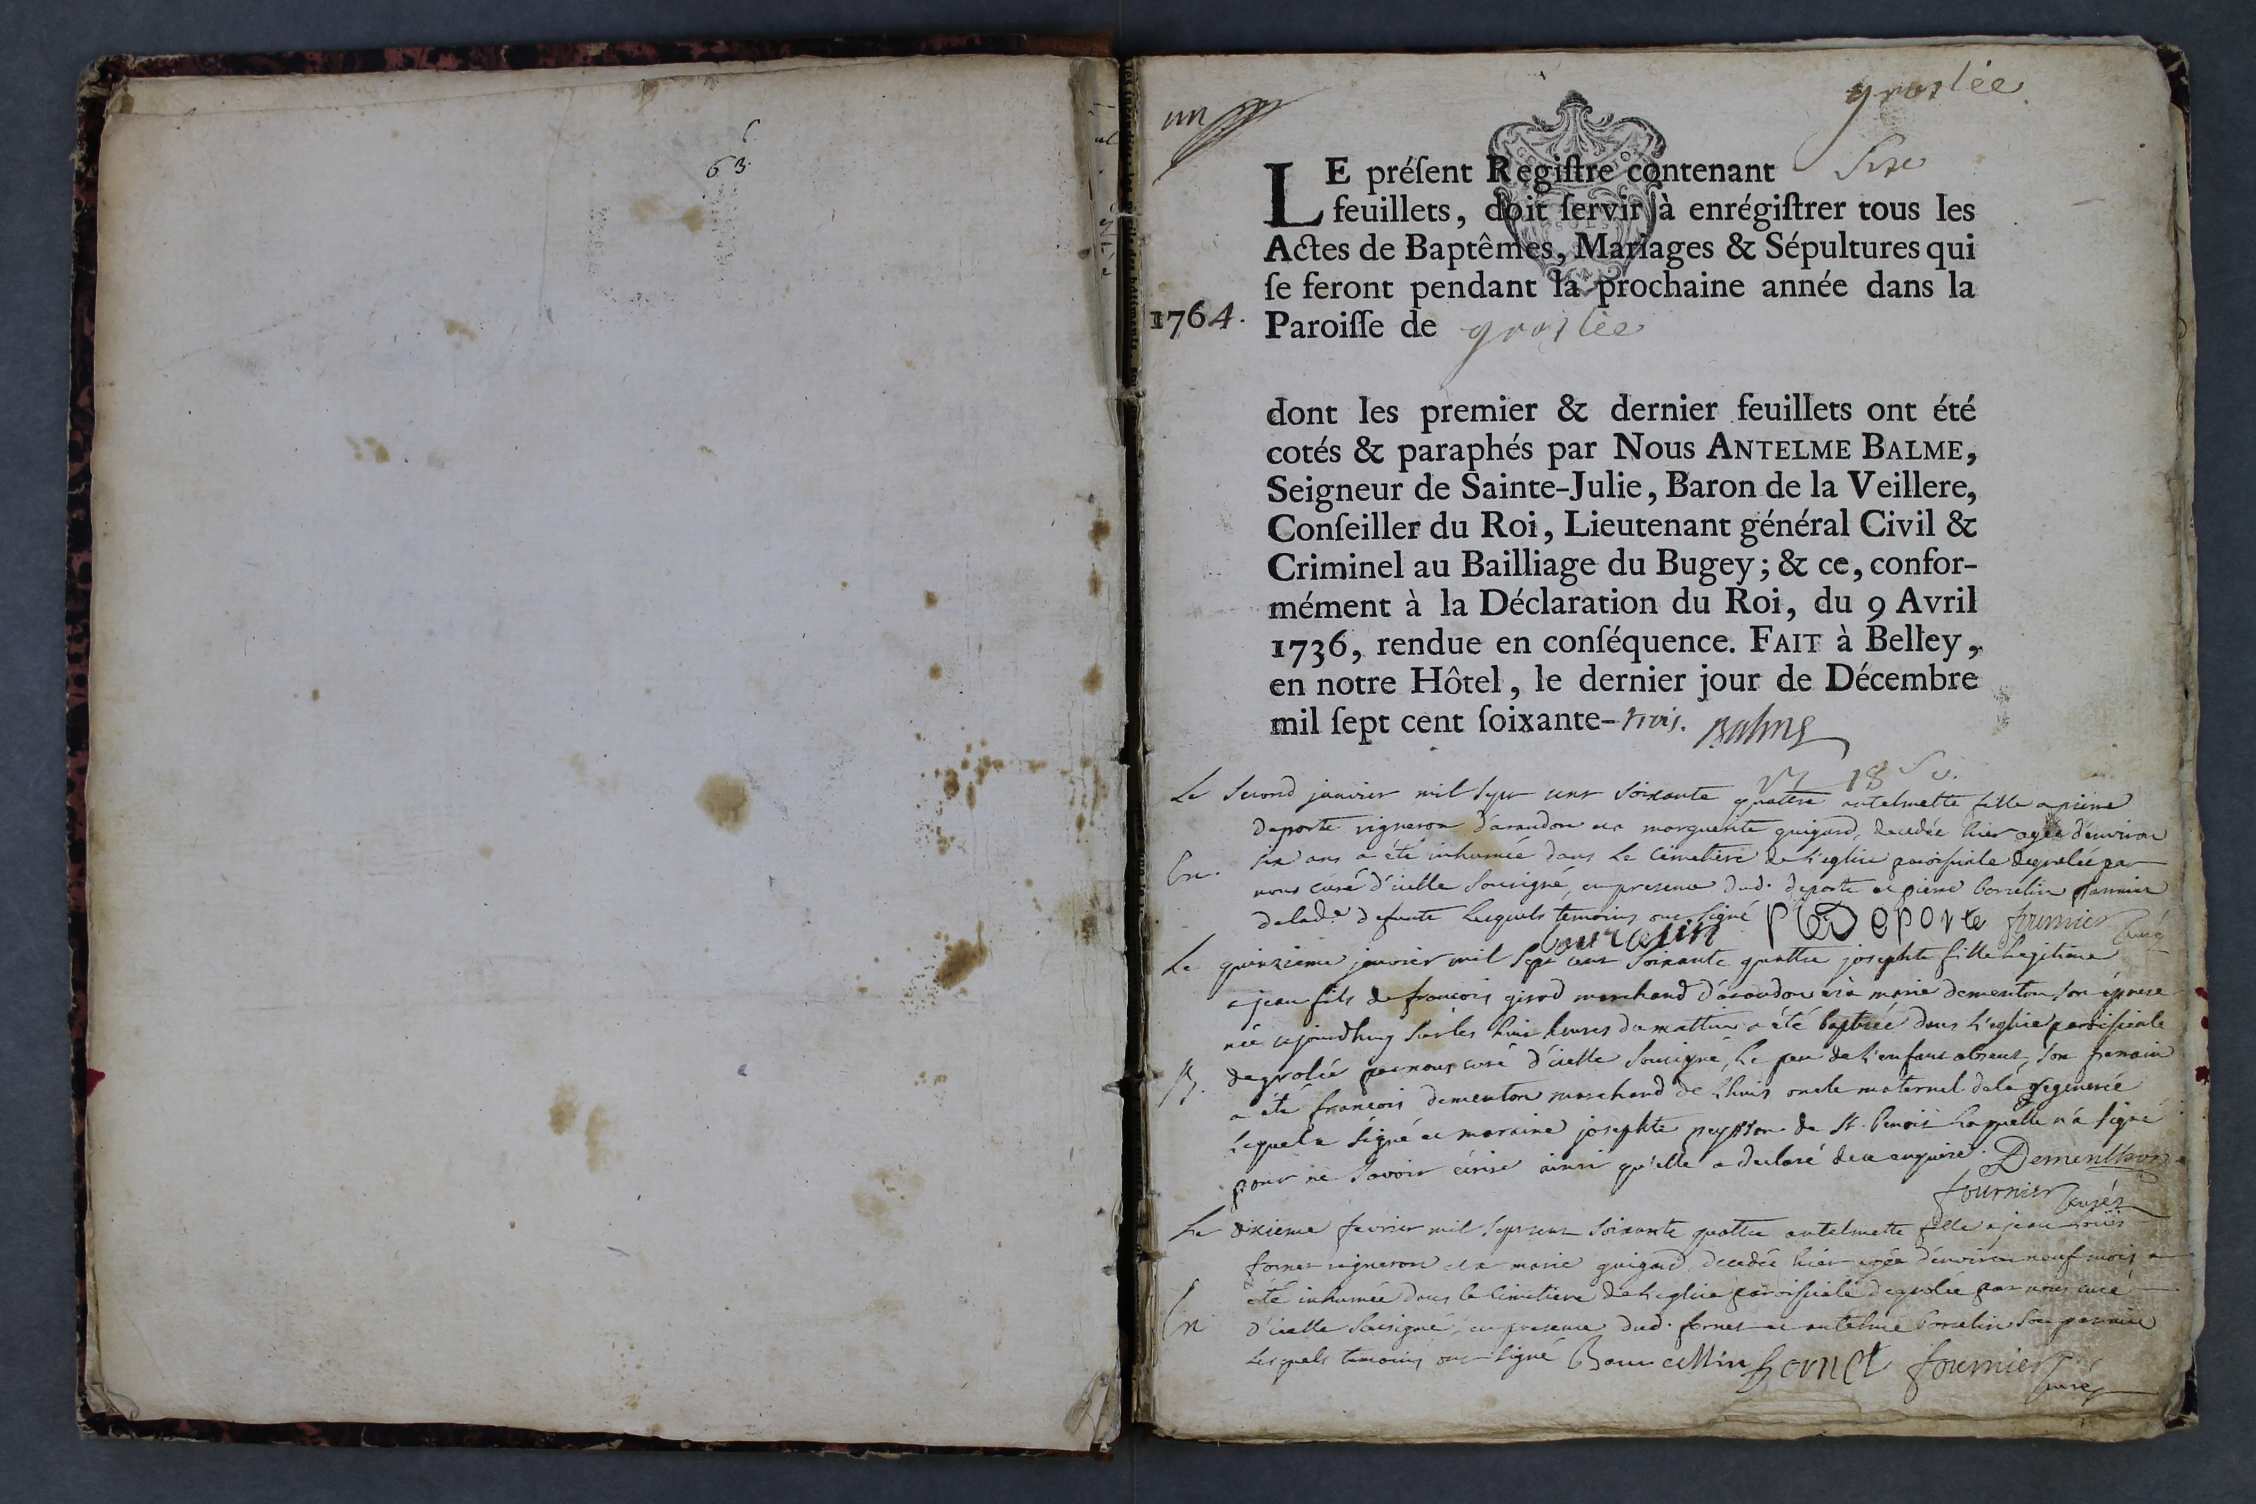 63.
un
groslée
LE préſent Regiſtre contenant Six
feuillets, doit ſervir à enrégiſtrer tous les
Actes de Baptêmes, Mariages & Sépultures qui
ſe feront pendant la prochaine année dans la
1764. Paroiſſe de groslée
dont les premier & dernier feuillets ont été
cotés & paraphés par Nous ANTELME BALME,
Seigneur de Sainte-Julie, Baron de la Veillere,
Conſeiller du Roi, Lieutenant général Civil &
Criminel au Bailliage du Bugey; & ce, confor-
mément à la Déclaration du Roi, du 9 Avril
1736, rendue en conſéquence. FAIT à Belley,
en notre Hôtel, le dernier jour de Décembre
mil ſept cent ſoixante-trois. Balme
18
Le second janvier mil sept cent soixante quattre antelmette fille a pierre
deporte vigneron d'arandon et a marguerite guigard, decedée hier agée d'environ
six ans a été inhumée dans le cimetiere de l'eglise paroissiale de grolée par
En. nous curé d'icelle soussigné, en presence dud. deporte et pierre borcelin
delad.e defunte lesquels temoins ont signé P Deporte fournier curé
bourcelin
Le quinzieme janvier mil sept cent soixante quattre josephte fille legitime
a jean fils de francois girod marchand d'arandon et à marie dementon son épouse
née cejourdhuy sur les huit heures du mattin a été baptisée dans l'eglise paroissiale
B. de grolée par nous curé d'icelle soussigné, le pere de l'enfant absent, son parrain
a été francois dementon marchand de Lhuis oncle maternel de la regenerée
lequel a signé et maraine josephte peysson de St. benoit laquelle n'a signé
pour ne savoir écrire ainsi qu'elle a declaré de ce enquise. Dementhon
fournier curé
Le dixieme fevrier mil sept cent soixante quattre antelmette fille a jean louis
fornet vigneron et a marie guigard decedée hier agée d'environ neuf mois a
été inhumée dans le cimetiere de l'eglise paroissiale de grolée par nous curé
En d'icelle soussigné, en presence dud. fornet et antelme borcelin son parrain
lesquels temoins ont signé Bourcellin fornet fournier curé